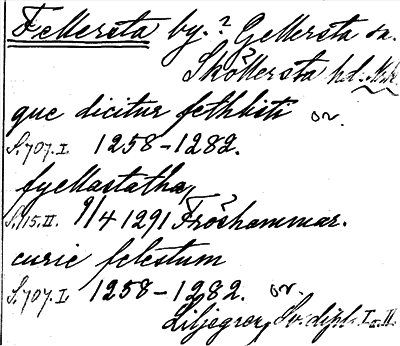 Fellersta by. ? Gellersta sn.
Sköllersta hd. Nrk.
que dicitur fethlisti or.
S. 707. I. 1258-1282.
fyellastatha,
S. 115. II. 9/4 1291 Fröshammar.
curie felestum
S. 707. I. 1258-1282. or.
Liljegren, Sv. dipl. I o. II.